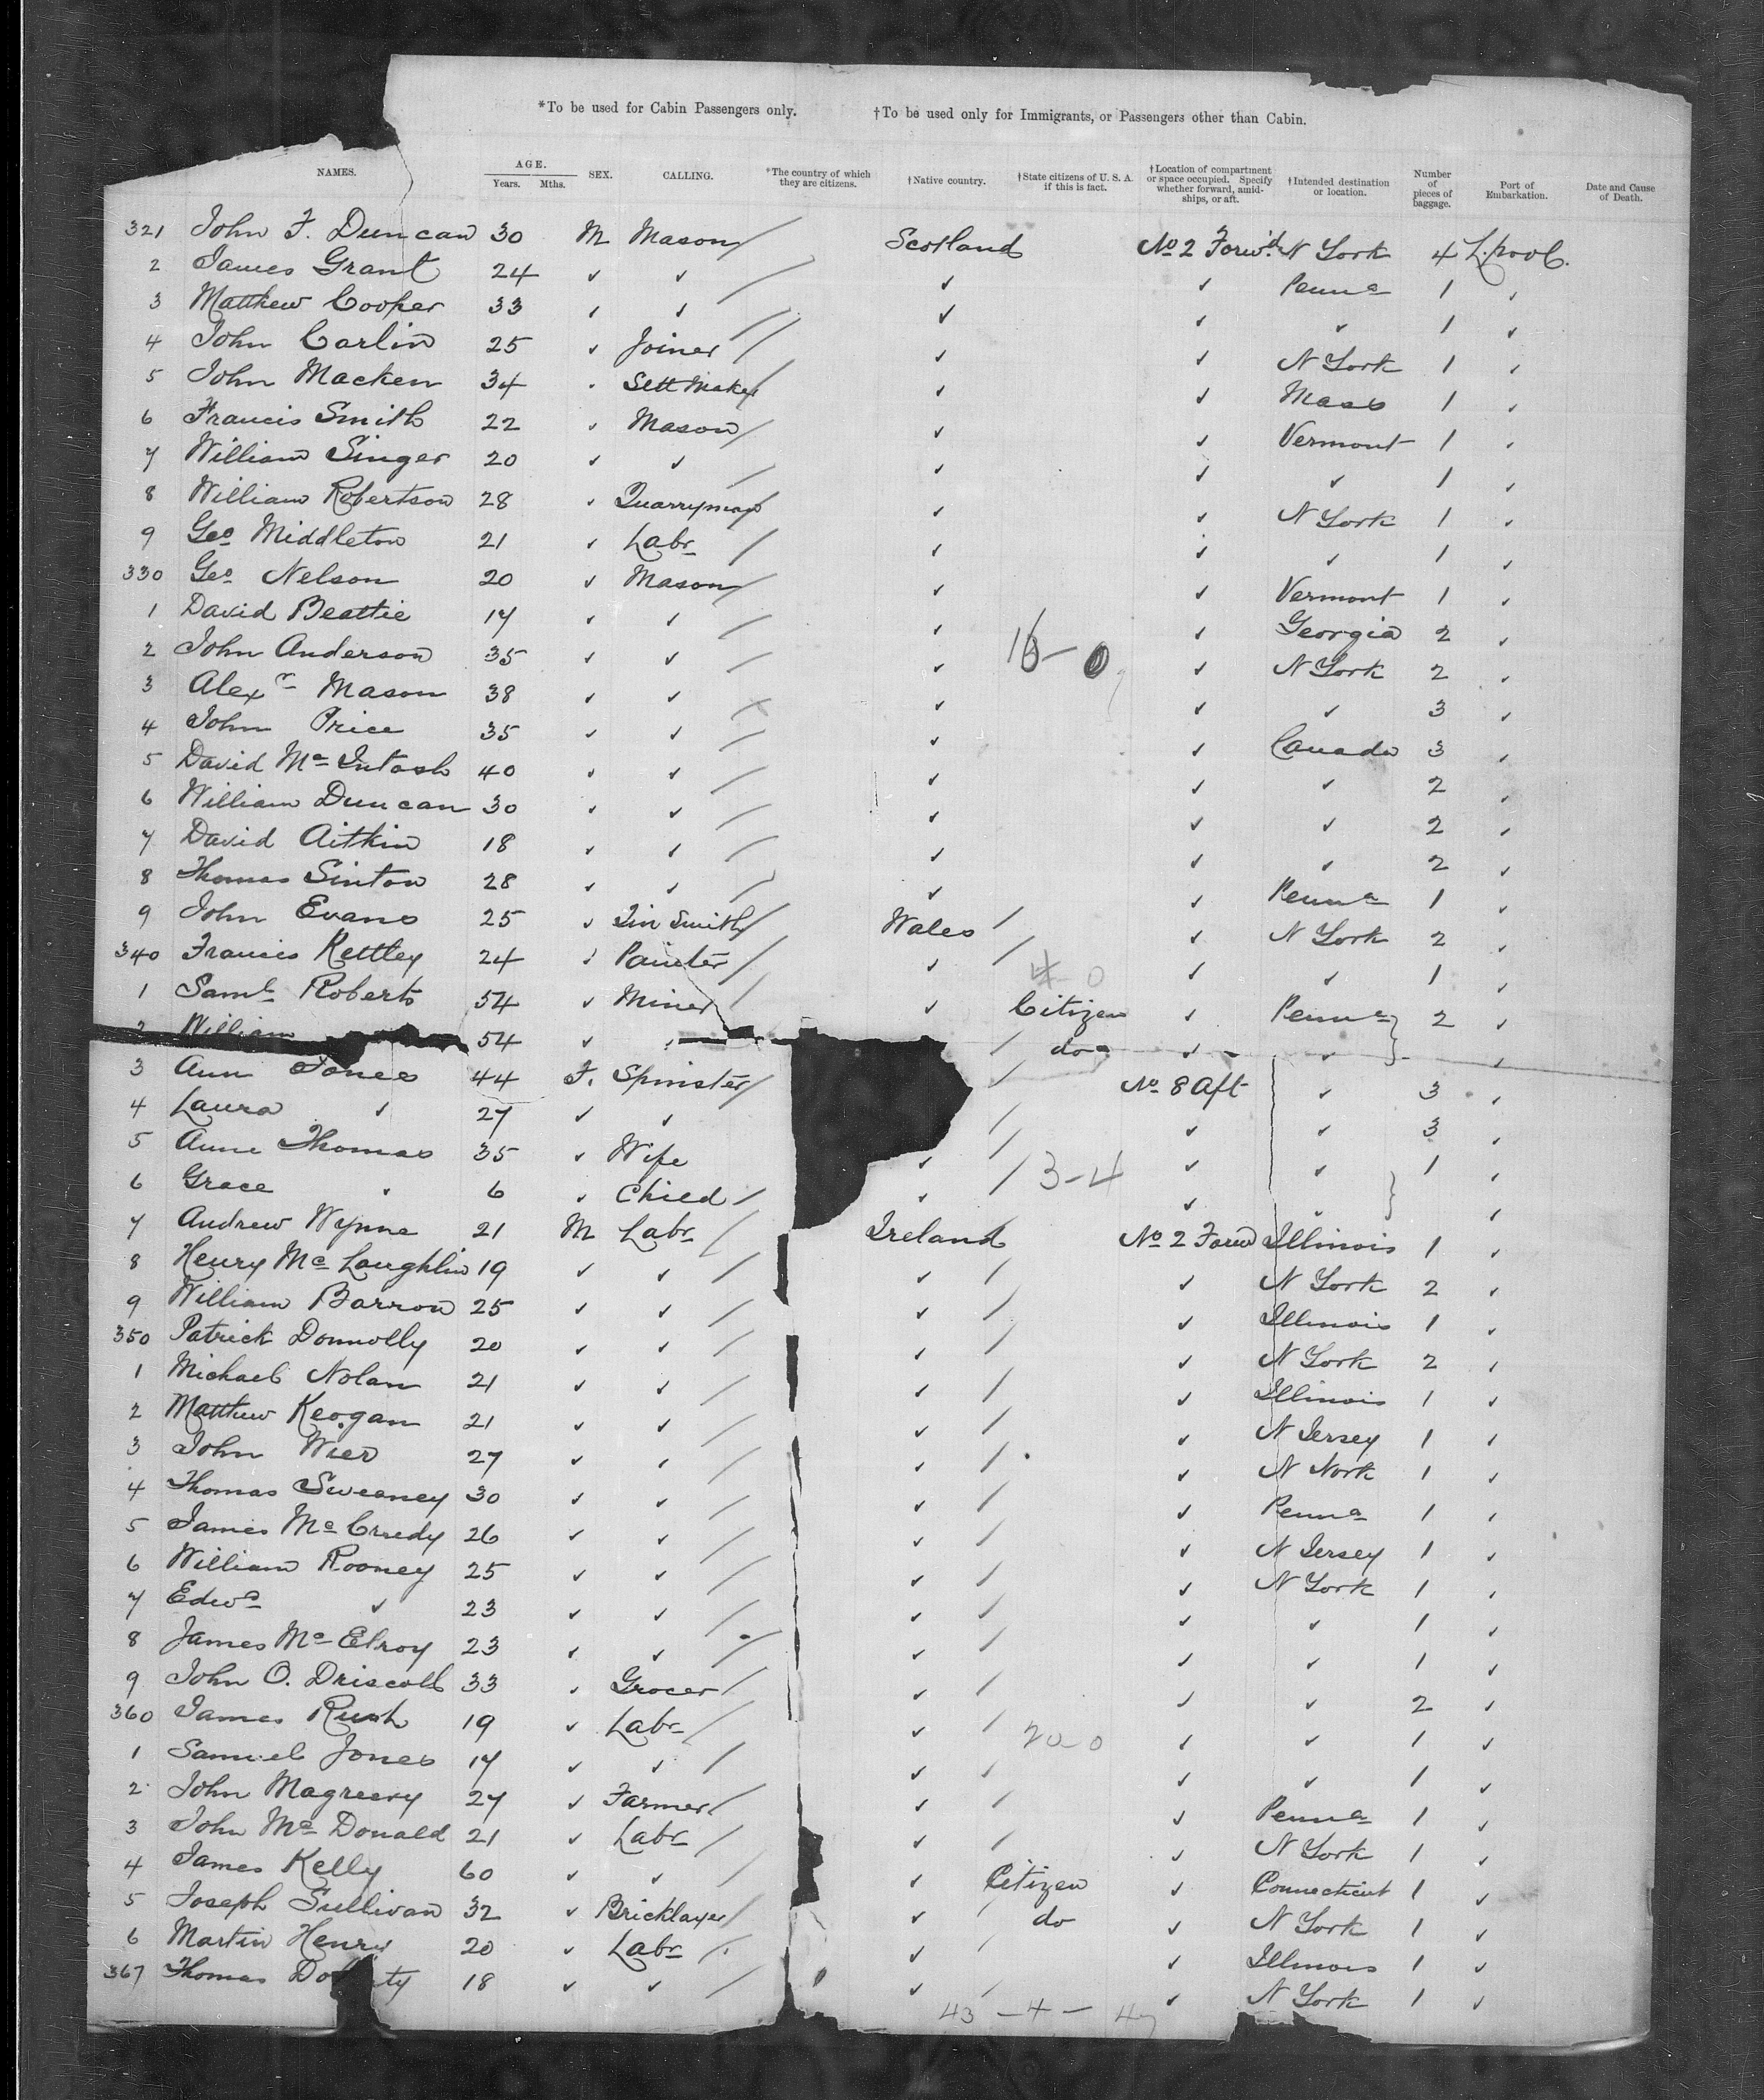 *To be used for Cabin Passengers only. †To be used only for Immigrants, or Passengers other than Cabin.
NAMES. AGE. Years. Mths. SEX. CALLING. *The country of which they are citizens. †Native country. †State citizens of U. S. A. if this is fact. †Location of compartment or space occupied. Specify whether forward, amidships, or aft. †Intended destination or location. Number of pieces of baggage. Port of Embarkation. Date and Cause of Death.
321 John F. Duncan 30 M Mason Scotland No 2 Forwd. N York 4 L.pool.
2 James Grant 24 ✓ ✓ ✓ ✓ Penna 1 ✓
3 Matthew Cooper 33 ✓ ✓ ✓ ✓ ✓ 1 ✓
4 John Carlin 25 ✓ Joiner ✓ ✓ N York 1 ✓
5 John Macken 34 ✓ Sett Maker ✓ ✓ Mass 1 ✓
6 Francis Smith 22 ✓ Mason ✓ ✓ Vermont 1 ✓
7 William Singer 20 ✓ ✓ ✓ ✓ ✓ 1 ✓
8 William Robertson 28 ✓ Quarryman ✓ ✓ N York 1 ✓
9 Geo Middleton 21 ✓ Labr ✓ ✓ ✓ 1 ✓
330 Geo Nelson 20 ✓ Mason ✓ ✓ Vermont 1 ✓
1 David Beattie 17 ✓ ✓ ✓ ✓ Georgia 2 ✓
2 John Anderson 35 ✓ ✓ ✓ ✓ N York 2 ✓
3 Alexr Mason 38 ✓ ✓ ✓ ✓ ✓ 3 ✓
4 John Price 35 ✓ ✓ ✓ ✓ Canada 3 ✓
5 David Mc Intosh 40 ✓ ✓ ✓ ✓ ✓ 2 ✓
6 William Duncan 30 ✓ ✓ ✓ ✓ ✓ 2 ✓
7 David Aitkin 18 ✓ ✓ ✓ ✓ ✓ 2 ✓
8 Thomas Sinton 28 ✓ ✓ ✓ ✓ Penna 1 ✓
9 John Evans 25 ✓ Tin Smith Wales ✓ N York 2 ✓
340 Francis Kettley 24 ✓ Painter ✓ ✓ ✓ 1 ✓
1 Saml Roberts 54 ✓ Miner ✓ Citizen ✓ Penna 2 ✓
2 William 54 ✓ ✓ do ✓ ✓ ✓
3 Ann Jones 44 F. Spinster No 8 Aft ✓ 3 ✓
4 Laura ✓ 27 ✓ ✓ ✓ ✓ 3 ✓
5 Anne Thomas 35 ✓ Wife ✓ 3-4 ✓ ✓ 1 ✓
6 Grace ✓ 6 ✓ Child ✓ ✓ ✓ ✓
7 Andrew Wynne 21 M Labr Ireland No 2 Forwd Illinois 1 ✓
8 Henry Mc Laughlin 19 ✓ ✓ ✓ ✓ N York 2 ✓
9 William Barron 25 ✓ ✓ ✓ ✓ Illinois 1 ✓
350 Patrick Donnolly 20 ✓ ✓ ✓ ✓ N York 2 ✓
1 Michael Nolan 21 ✓ ✓ ✓ ✓ Illinois 1 ✓
2 Matthew Keogan 21 ✓ ✓ ✓ ✓ N Jersey 1 ✓
3 John Wier 27 ✓ ✓ ✓ ✓ N Nork 1 ✓
4 Thomas Sweeney 30 ✓ ✓ ✓ ✓ Penna 1 ✓
5 James Mc Creedy 26 ✓ ✓ ✓ ✓ N Jersey 1 ✓
6 William Rooney 25 ✓ ✓ ✓ ✓ N York 1 ✓
7 Edwd ✓ 23 ✓ ✓ ✓ ✓ ✓ 1 ✓
8 James Mc Elroy 23 ✓ ✓ ✓ ✓ ✓ 1 ✓
9 John O. Driscoll 33 ✓ Grocer ✓ ✓ ✓ 2 ✓
360 James Rush 19 ✓ Labr ✓ 20-0 ✓ ✓ 1 ✓
1 Samuel Jones 17 ✓ ✓ ✓ ✓ ✓ 1 ✓
2 John Magreevy 27 ✓ Farmer ✓ ✓ Penna 1 ✓
3 John Mc Donald 21 ✓ Labr ✓ ✓ N York 1 ✓
4 James Kelly 60 ✓ ✓ ✓ Citizen ✓ Connecticut 1 ✓
5 Joseph Sullivan 32 ✓ Bricklayer ✓ do ✓ N York 1 ✓
6 Martin Henry 20 ✓ Labr ✓ ✓ Illinois 1 ✓
367 Thomas 18 ✓ ✓ ✓ ✓ N York 1 ✓
43 - 4 -